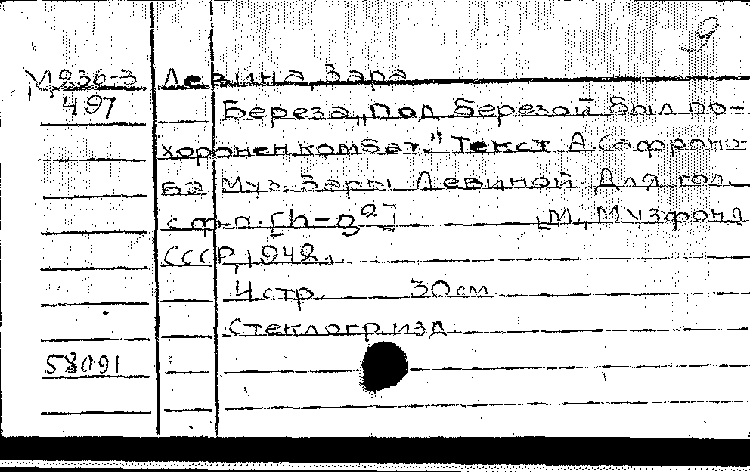 9
М 236-3 Левина, Зара
497 Береза „Под березой был по-
хоронен комбат." Текст А. Софроно-
ва Муз. Зары Левиной. Для гол.
с ф-п. [h-g²] [М., Музфонд
СССР, 1942].
4 стр. 30 см
Стеклогр. изд.
58091